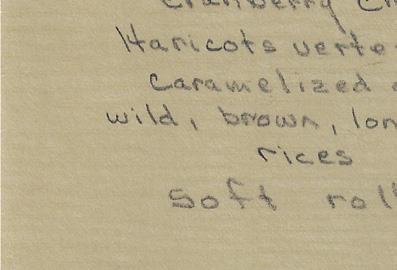 Cranberry Ch
Haricots verte
Caramelized
wild, brown, lon
rices
Soft roll